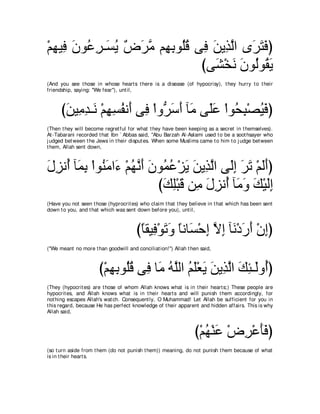 (فَتَرَى الَّذِينَ فِى قُلُوبِهِم مَّرَضٌ يُسَـرِعُونَ فِيهِمْ
يَقُولُونَ نَخْشَى)
(And you see those in whose hearts there is a disease (of hypocrisy), they hurry to their
friendship, saying: "We fear"), until,
(فَيُصْبِحُواْ عَلَى مَآ أَسَرُّواْ فِى أَنفُسِهِمْ نَـدِمِينَ)
(Then they will become regretful for what they have been keeping as a secret in themselves).
At-Tabarani recorded that Ibn `Abbas said, "Abu Barzah Al-Aslami used to be a soothsayer who
judged between the Jews in their disputes. When some Muslims came to him to judge between
them, Allah sent down,
(أَلَمْ تَرَ إِلَى الَّذِينَ يَزْعُمُونَ أَنَّهُمْ ءَامَنُواْ بِمَآ أُنزِلَ
إِلَيْكَ وَمَآ أُنزِلَ مِن قَبْلِكَ)
(Have you not seen those (hyprocrites) who claim that they believe in that which has been sent
down to you, and that which was sent down before you), until,
(إِنْ أَرَدْنَآ إِلاَّ إِحْسَاناً وَتَوْفِيقاً)
("We meant no more than goodwill and conciliation!") Allah then said,
(أُولَـئِكَ الَّذِينَ يَعْلَمُ اللَّهُ مَا فِى قُلُوبِهِمْ)
(They (hypocrites) are those of whom Allah knows what is in their hearts;) These people are
hypocrites, and Allah knows what is in their hearts and will punish them accordingly, for
nothing escapes Allah's watch. Consequently, O Muhammad! Let Allah be sufficient for you in
this regard, because He has perfect knowledge of their apparent and hidden affairs. This is why
Allah said,
(فَأَعْرِضْ عَنْهُمْ)
(so turn aside from them (do not punish them)) meaning, do not punish them because of what
is in their hearts.